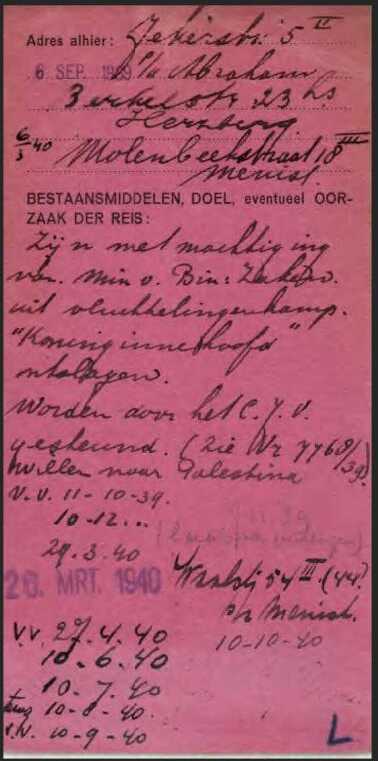 Adres alhier: Jekerstr. 5 II
6 SEP. 1939 p/a Abraham
Berkelstr 23 hs
Herzberg
6/3 40 Molenbeekstraat 18 III
Menist.
BESTAANSMIDDELEN, DOEL, eventueel OOR-
ZAAK DER REIS:
Zijn met machtiging
van Min v. Bin: Zaken.
uit vluchtelingenkamp.
"Koninginnehoofd"
ontslagen.
Worden door het C.J.V.
gesteund. (Zie Nr 7768/39)
willen naar Palestina
V.V. 11-10-39.
10-12...
29.3.40
26. MRT. 1940 54 III. (44).
p/a Menist.
V.V. 27.4.40 10-10-40
10.6.40
10.7.40
10-8-40.
V.V. 10-9-40
L